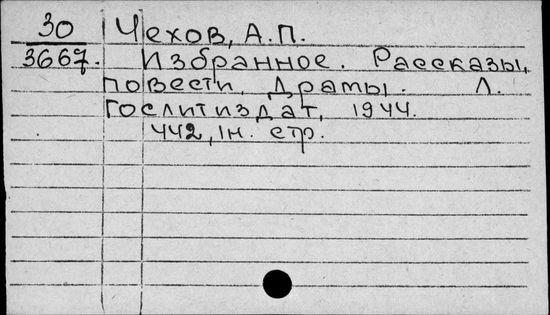 30 Чехов, А.П.
3667. Избранное. Рассказы,
повести, драмы. Л.
Гослитиздат, 1944.
442, 1н. стр.